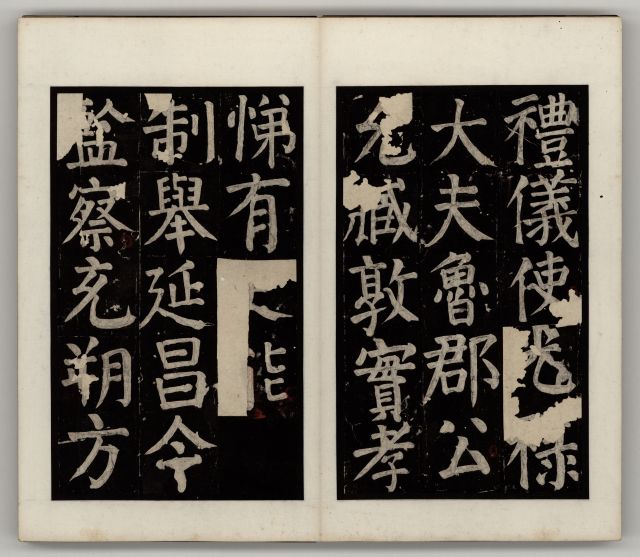 禮儀使光祿
大夫魯郡公
允臧敦實孝
悌有能
制舉延昌令
監察充朔方